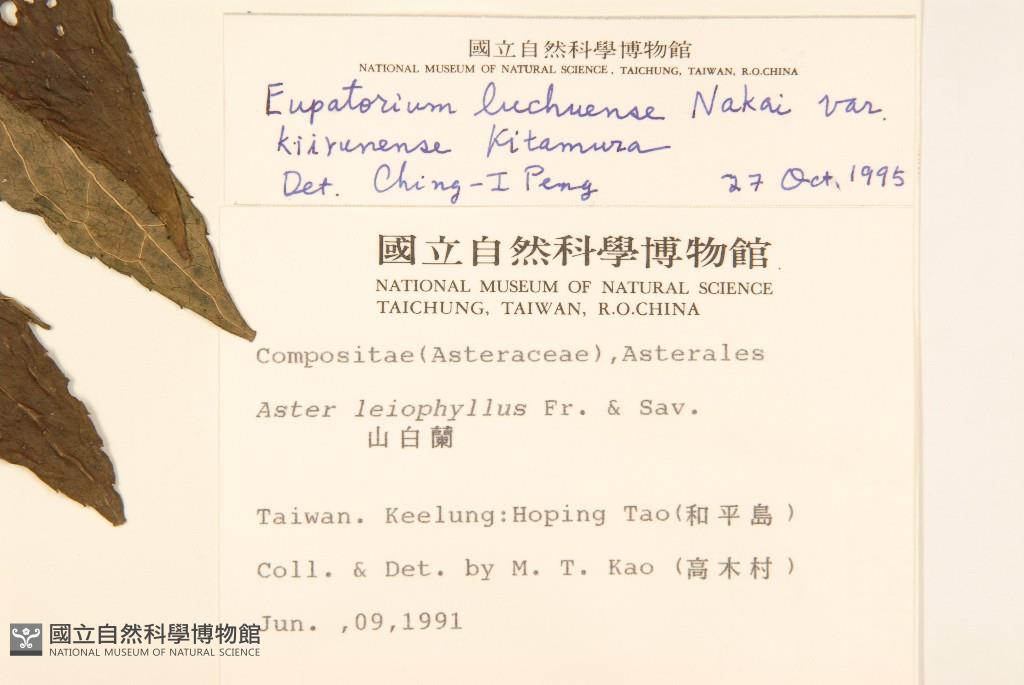 國立自然科學博物館
NATIONAL MUSEUM OF NATURAL SCIENCE, TAICHUNG, TAIWAN, R.O.CHINA
Eupatorium luchuense Nakai var.
kiirunense Kitamura
Det. Ching-I Peng 27 Oct. 1995
國立自然科學博物館
NATIONAL MUSEUM OF NATURAL SCIENCE
TAICHUNG, TAIWAN, R.O.CHINA
Compositae(Asteraceae),Asterales
Aster leiophyllus Fr. & Sav.
山白蘭
Taiwan. Keelung:Hoping Tao(和平島)
Coll. & Det. by M. T. Kao (高木村)
Jun. ,09,1991
國立自然科學博物館
NATIONAL MUSEUM OF NATURAL SCIENCE